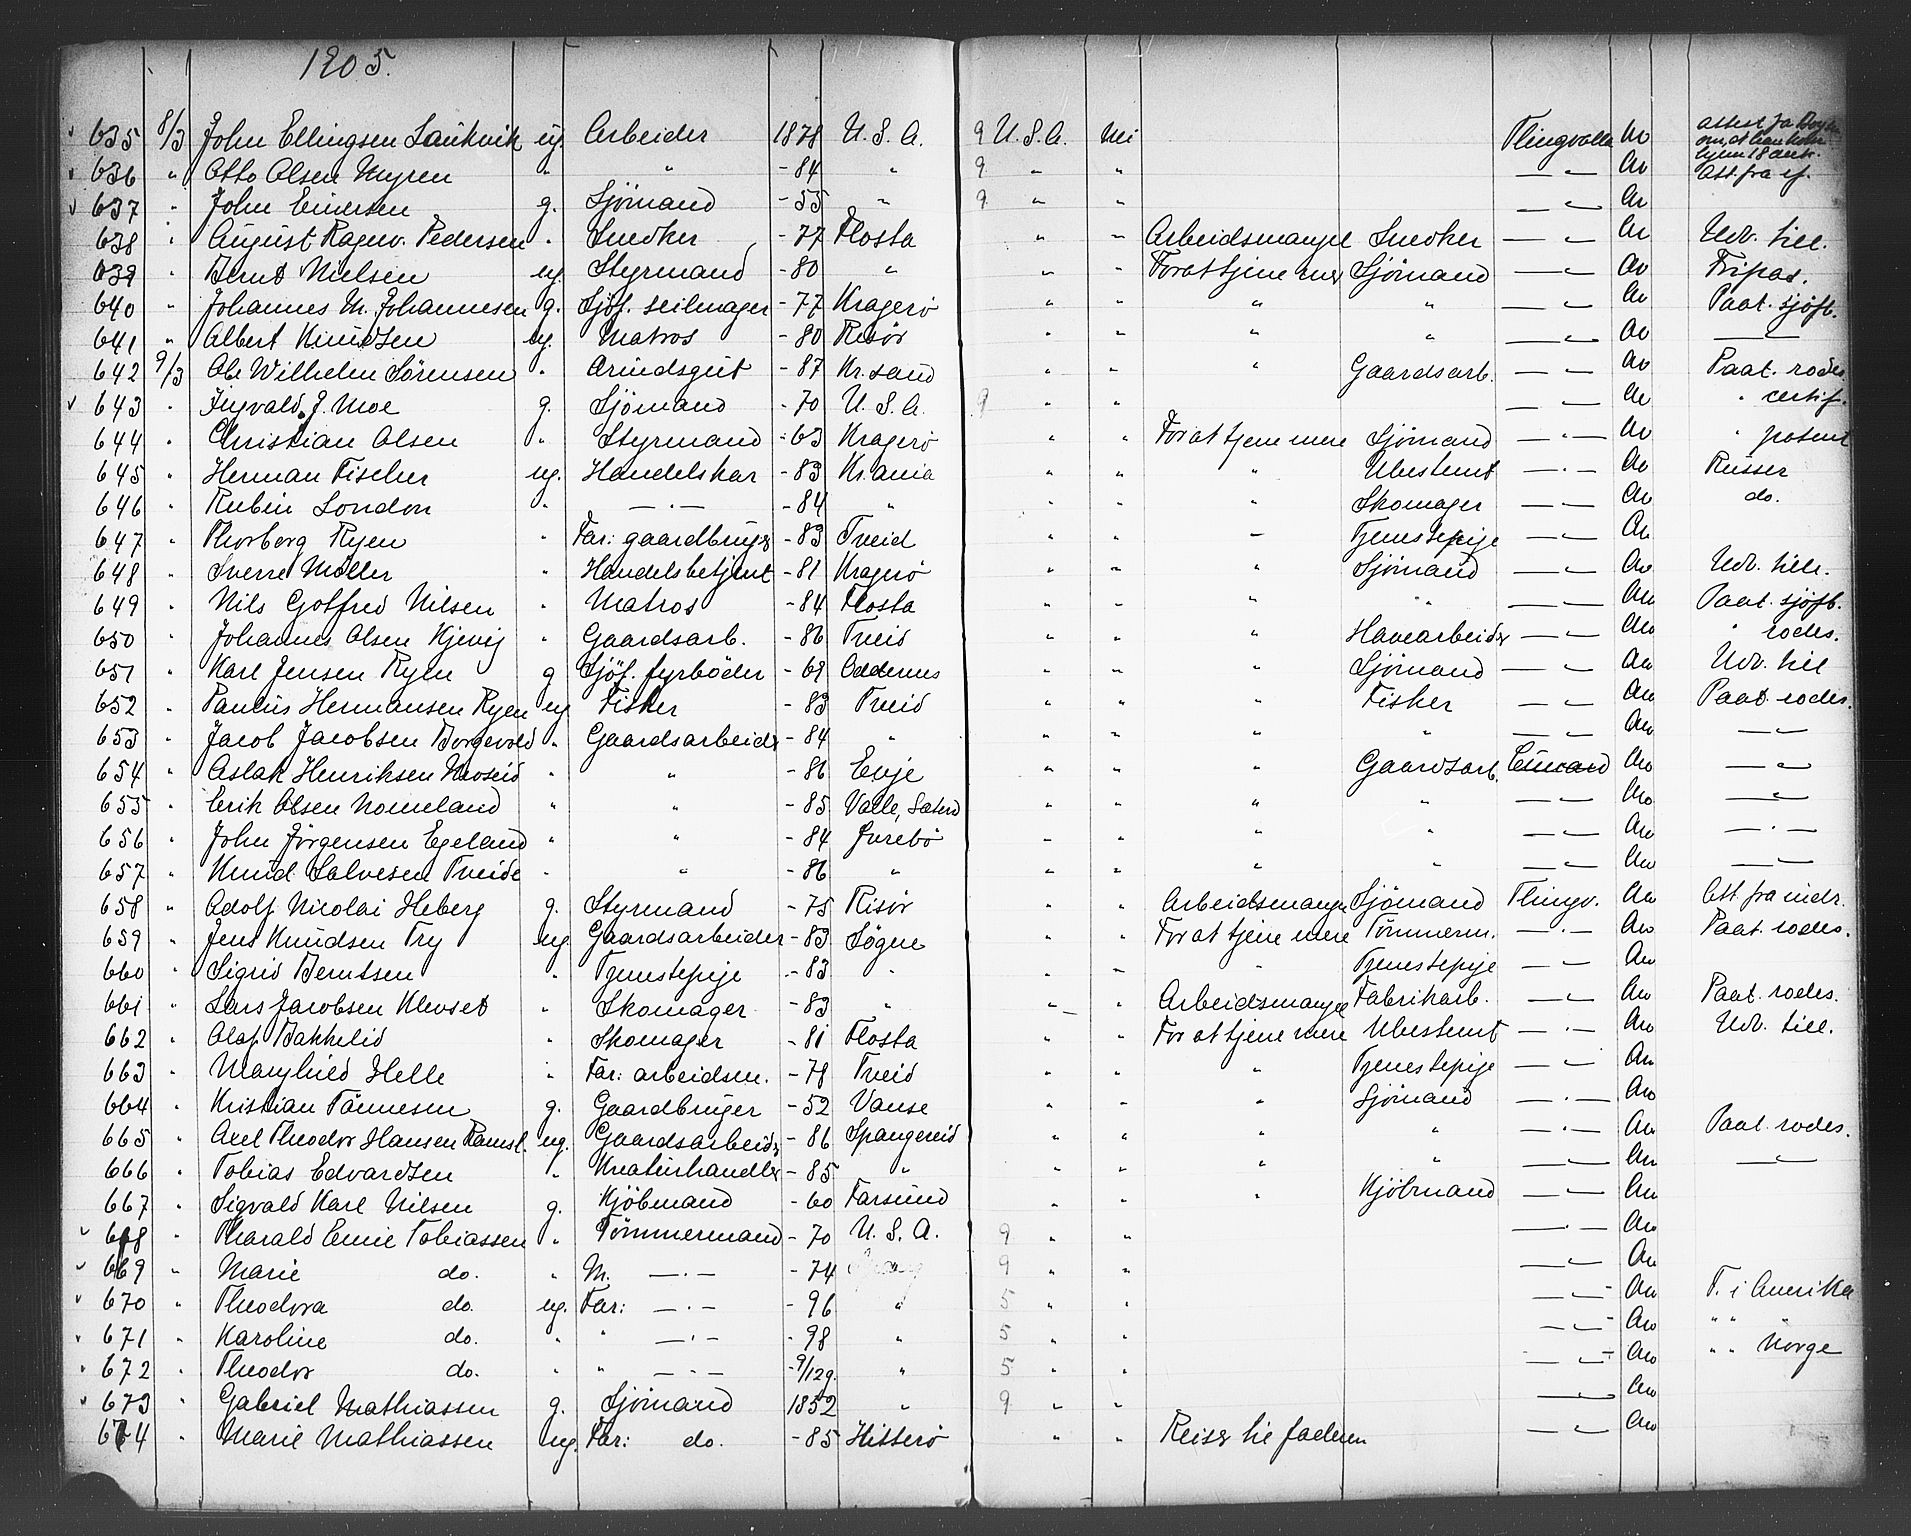 1905.
635 8/3 John Ellingsen Laukvik ug. Arbeider 1878 U. S. A. 9 U. S. A. Nei Flingvalla Av attest fra
636 " Otto Olsen Myren " " -84 " 9 " " — " — Av Att. fra
637 " John Einersen g. Sjömand -55 " 9 " " — " — Av
638 " August Ragnv. Pedersen " Snedker -77 Flosta " " Arbeidsmangel Snedker — " — Av Udv. till.
639 " Bernt Nielsen ug. Styrmand -80 " " " For at tjene mer Sjömand — " — Av Fripas.
640 " Johannes M. Johannesen g. Sjöf. seilmager -77 Kragerö " " " " — " — Av Paat. sjöfb.
641 " Albert Knudsen ug. Matros -80 Risör " " " " — " — Av — " —
642 9/3 Ole Wilhelm Sörensen " Ærindsgut -87 Kr.sand " " " Gaardsarb. — " — Av Paat. rodes.
643 " Ingvald J. Moe g. Sjömand -70 U. S. A. 9 — " — Av " certif.
644 " Christian Olsen " Styrmand -63 Kragerö " " For at tjene mere Sjömand — " — Av " patent
645 " Herman Fischer ug. Handelskar -83 Kr.ania " " " Ubestemt — " — Av Russer
646 " Rubin London " — " — -84 " " " " Skomager — " — Av do.
647 " Thorborg Ryen " Far: gaardbruger -83 Tveid " " " Tjenestepige — " — Av
648 " Sverre Möller " Handelsbetjent -81 Kragerö " " " Sjömand — " — Av Udv. till.
649 " Nils Gotfred Nilsen " Matros -84 Flosta " " " " — " — Av Paat. sjöfb.
650 " Johannes Olsen Kjevig " Gaardsarb. -86 Tveid " " " Havearbeider — " — Av " rodes.
651 " Karl Jensen Ryen g Sjöf. fyrböder -69 Oddernes " " " Sjömand — " — Av Udv. till
652 " Paulus Hermansen Ryen ug Fisker -83 Tveid " " " Fisker — " — Av Paat. rodes.
653 " Jacob Jacobsen Borgevold " Gaardsarbeider -84 " " " " " — " — Av — " —
654 " Aslak Henriksen " " -86 Evje " " " Gaardsarb. Cunard Av — " —
655 " Erik Olsen Nomeland " " -85 Valle, Sætesd " " " " — " — Av — " —
656 " John Jörgensen Egeland " " -84 " " " " — " — Av — " —
657 " Knud Salvesen Tveide " " -86 " " " " " — " — Av — " —
658 " Adolf Nicolai Heberg g. Styrmand -75 Risör " " Arbeidsmangel Sjömand Flingv. Av Att. fra indr.
659 " Jens Knudsen Try ug. Gaardsarbeider -83 Søgne " " For at tjene mere Tömmerm. — " — Av Paat. rodes.
660 " Sigrid Berntsen " Tjenestepige -83 " " " " Tjenestepige — " — Av
661 " Lars Jacobsen Klevset " Skomager -83 " " " Arbeidsmangel Fabrikarb. — " — Av Paat. rodes.
662 " Olaf Bakkelid " Skomager -81 Flosta " " For at tjene mere Ubestemt — " — Av Udv. till.
663 " Manghild Helle " Far: arbeidsm. -78 Tveid " " " Tjenestepige — " — Av
664 " Kristian Tönnesen g. Gaardbruger -52 Vanse " " " Sjömand — " — Av
665 " Axel Theodor Hansen Ramsl. ug. Gaardsarbeider -86 Spangereid " " " " — " — Av Paat. rodes.
666 " Tobias Edvardsen " Kreaturhandler -85 " " " " " — " — Av — " —
667 " Sigvald Karl Nilsen g. Kjöbmand -60 Farsund " " Kjöbmand — " — Av
668 " Tharald Emil Tobiassen " Tömmermand -70 U. S. A. 9 " " — " — Av
669 " Marie do. " M. — " — -74 9 " " — " — Av
670 " Theodora do. ug. Far: — " — -96 " 5 " " — " — Av T. i Amerika
671 " Karoline do. " " — " — -98 " 5 " " — " — Av " " "
672 " Theodor do. " " — " — -9/129. " 5 " " — " — Av " " Norge
673 " Gabriel Mathiassen g. Sjömand 1852 " 9 " " — " — Av
674 " Marie Mathiassen ug. Far: do. -85 Hitterö " " Reiser til faderen — " — Av